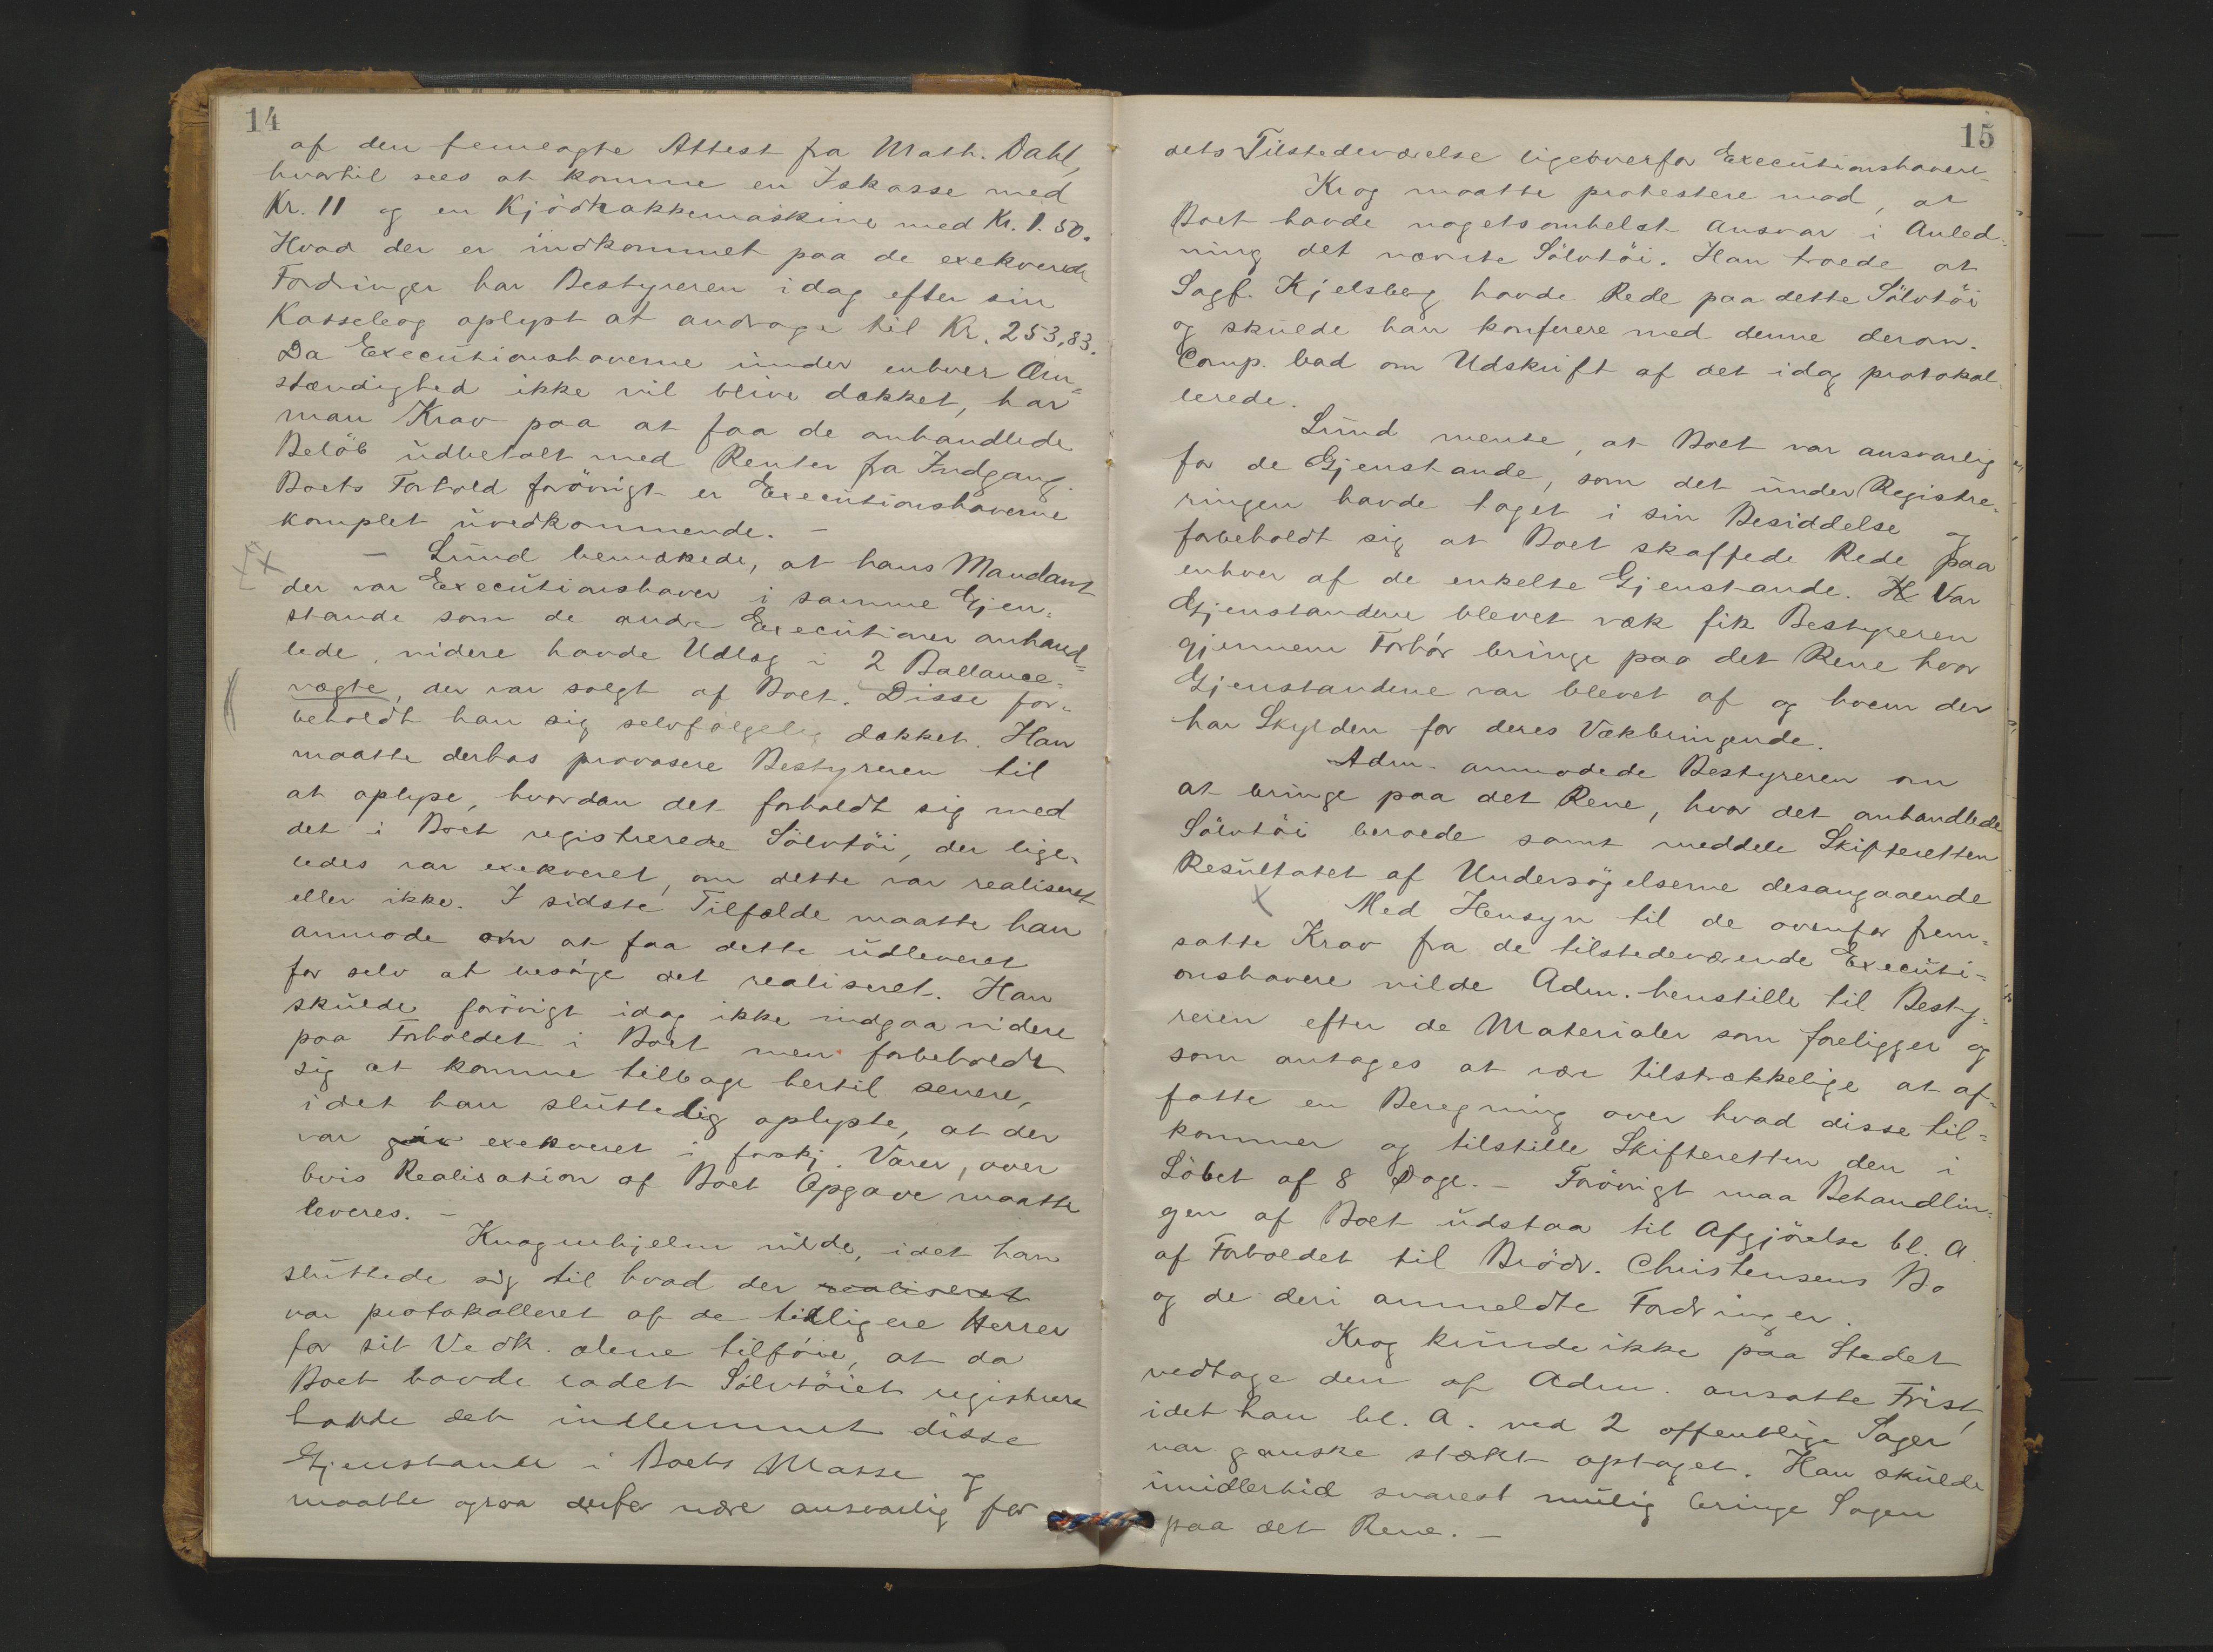 14
af den fremlagte Attest fra Math. Dahl,
hvortil sees at komme en Iskasse med
Kr. 11 og en Kjödhakkemaskine med Kr. 1.50.
Hvad der er indkommet paa de exekverede
Fordringer har Bestyreren idag efter sin
Kassebog oplyst at andrage til Kr. 253,83.
Da Executionshaverne under enhver Om=
stændighed ikke vil blive dækket, har
man Krav paa at faa de anhandlede
Belöb udbetalt med Renter fra Indgang.
Boets Forhold forövrigt er Executionshaverne
komplet uvedkommende. -
- Lund bemærkede, at hans Mandant
der var Executionshaver i samme Gjen=
stande som de andre Executioner anhand=
lede, videre havde Udlæg i 2 Ballance=
vægte, der var solgt af Boet. Disse for=
beholdt han sig selvfölgelig dækket. Han
maatte derhos provosere Bestyreren til
at oplyse, hvordan det forholdt sig med
det i Boet registrerede Sölvtöi, der lige=
ledes var exekveret, om dette var realiseret
eller ikke. I sidste Tilfælde maatte han
anmode om at faa dette udleveret
for selv at besörge det realiseret. Han
skulde forövrigt idag ikke indgaa videre
paa Forholdet i Boet men forbeholdt
sig at komme tilbage hertil senere,
idet han sluttelig oplyste, at der
var exekveret i forskj. Varer, over
hvis Realisation af Boet Opgave maatte
leveres. -
Knagenhjelm vilde, idet han
sluttede sig til hvad der realiseret
var protokolleret af de tidligere Herrer
for sit Vedk. alene tilföie, at da
Boet havde ladet Sölvtöiet registrere
havde det indlemmet disse
Gjenstande i Boets Masse og
maatte ogsaa derfor være ansvarlig for
15
dets Tilstedeværelse ligeoverfor Executionshavere-
Krog maatte protestere mod, at
Boet havde nogetsomhelst Ansvar i Anled=
ning det nævnte Sölvtöi. Han troede at
Sagf. Kjelsberg havde Rede paa dette Sölvtöi
og skulde han konferere med denne derom.
Comp. bad om Udskrift af det idag protokol=
lerede.
Lund mente, at Boet var ansvarlig
for de Gjenstande, som det under Registre=
ringen havde taget i sin Besiddelse og
forbeholdt sig at Boet skaffede Rede paa
enhver af de enkelte Gjenstande. Var
Gjenstandene blevet væk fik Bestyreren
gjennem Forhör bringe paa det Rene hvor
Gjenstandene var blevet af og hvem der
har Skylden for deres Vækbringende.
Adm. anmodede Bestyreren om
at bringe paa det Rene, hvor det anhandlede
Sölvtöi beroede samt meddele Skifteretten
Resultatet af Undersögelserne desangaaende
Med Hensyn til de ovenfor frem=
satte Krav fra de tilstedeværende Executi=
onshavere vilde Adm. henstille til Besty=
reren efter de Materialer som foreligger og
som antages at være tilstrækkelige at af=
fatte en Beregning over hvad disse til=
kommer og tilstille Skifteretten den i
Löbet af 8 Dage. - Forövrigt maa Behandlin=
gen af Boet udstaa til Afgjörelse bl. A.
af Forholdet til Brödr. Christensens Bo
og de deri anmeldte Fordringer.
Krog kunde ikke paa Stedet
vedtage den af Adm. ansatte Frist,
idet han bl. A. ved 2 offentlige Sager
var ganske stærkt optaget. Han skulde
imidlertid snarest mulig bringe Sagen
paa det Rene. -